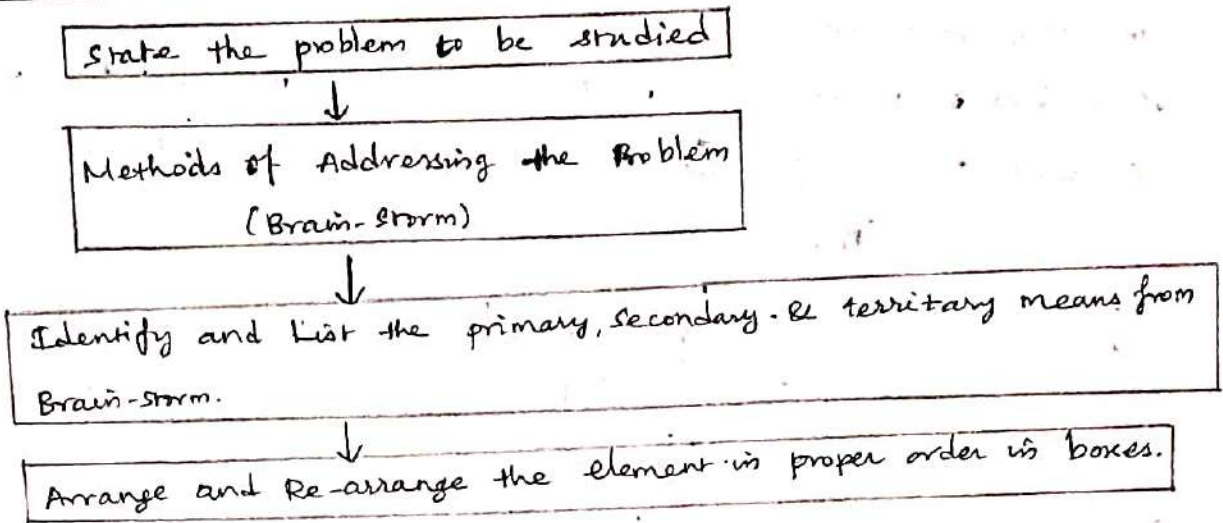 State the problem to be studied
Methods of Addressing the Problem
(Brain-storm)
Identify and List the primary, secondary. & territary means from
Brain-storm.
Arrange and Re-arrange the element in proper order in boxes.